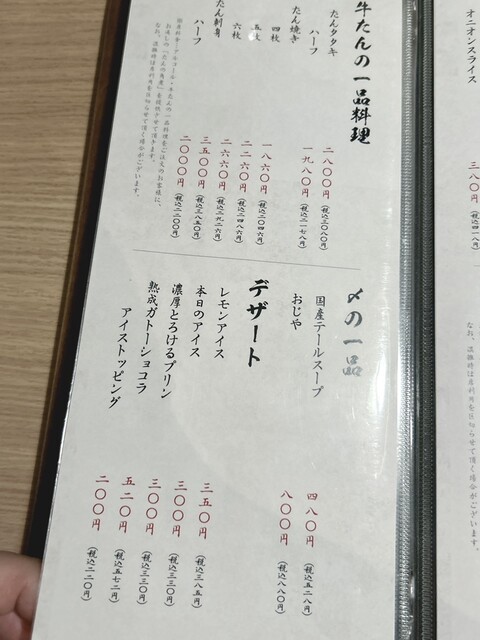 オニオンスライス
三八〇円（税込四一八円）
牛たんの一品料理
たんタタキ 二八〇〇円（税込三〇八〇円）
ハーフ 一九八〇円（税込二一七八円）
たん焼き
四枚 一八六〇円（税込二〇四六円）
五枚 二二六〇円（税込二四八六円）
六枚 二六六〇円（税込二九二六円）
たん刺身 三五〇〇円（税込三八五〇円）
ハーフ 二〇〇〇円（税込二二〇〇円）
お通しの「たんの角煮」を提供させて頂きます。
なお、混雑時は席利用を区切らせて頂く場合がございます。
〆の一品
国産テールスープ 四八〇円（税込五二八円）
おじや 八〇〇円（税込八八〇円）
デザート
レモンアイス 三五〇円（税込三八五円）
本日のアイス 三〇〇円（税込三三〇円）
濃厚とろけるプリン 三〇〇円（税込三三〇円）
熟成ガトーショコラ 五二〇円（税込五七二円）
アイストッピング 二〇〇円（税込二二〇円）
なお、混雑時は席利用を区切らせて頂く場合がございます。